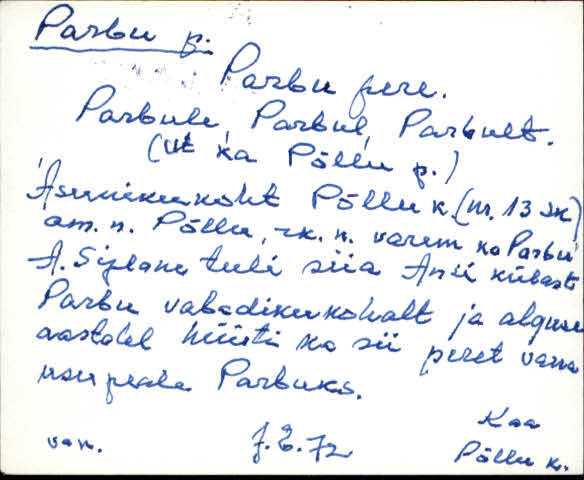 Parbu p.
Parbu pere.
Parbule, Parbul, Parbult.
(vt ka Põllu p.)
Asunikukoht Põllu k. (nr. 13 sk)
am. n. Põllu, rk. n. varem ka Parbu
A. Siplane tuli siia Ansi külast
Parbu vabadikukohalt ja alguse
aastatel hüüti ka sii peret vana
usu peale Parbuks.
Kaa
van. J.E.72
Põllu k.